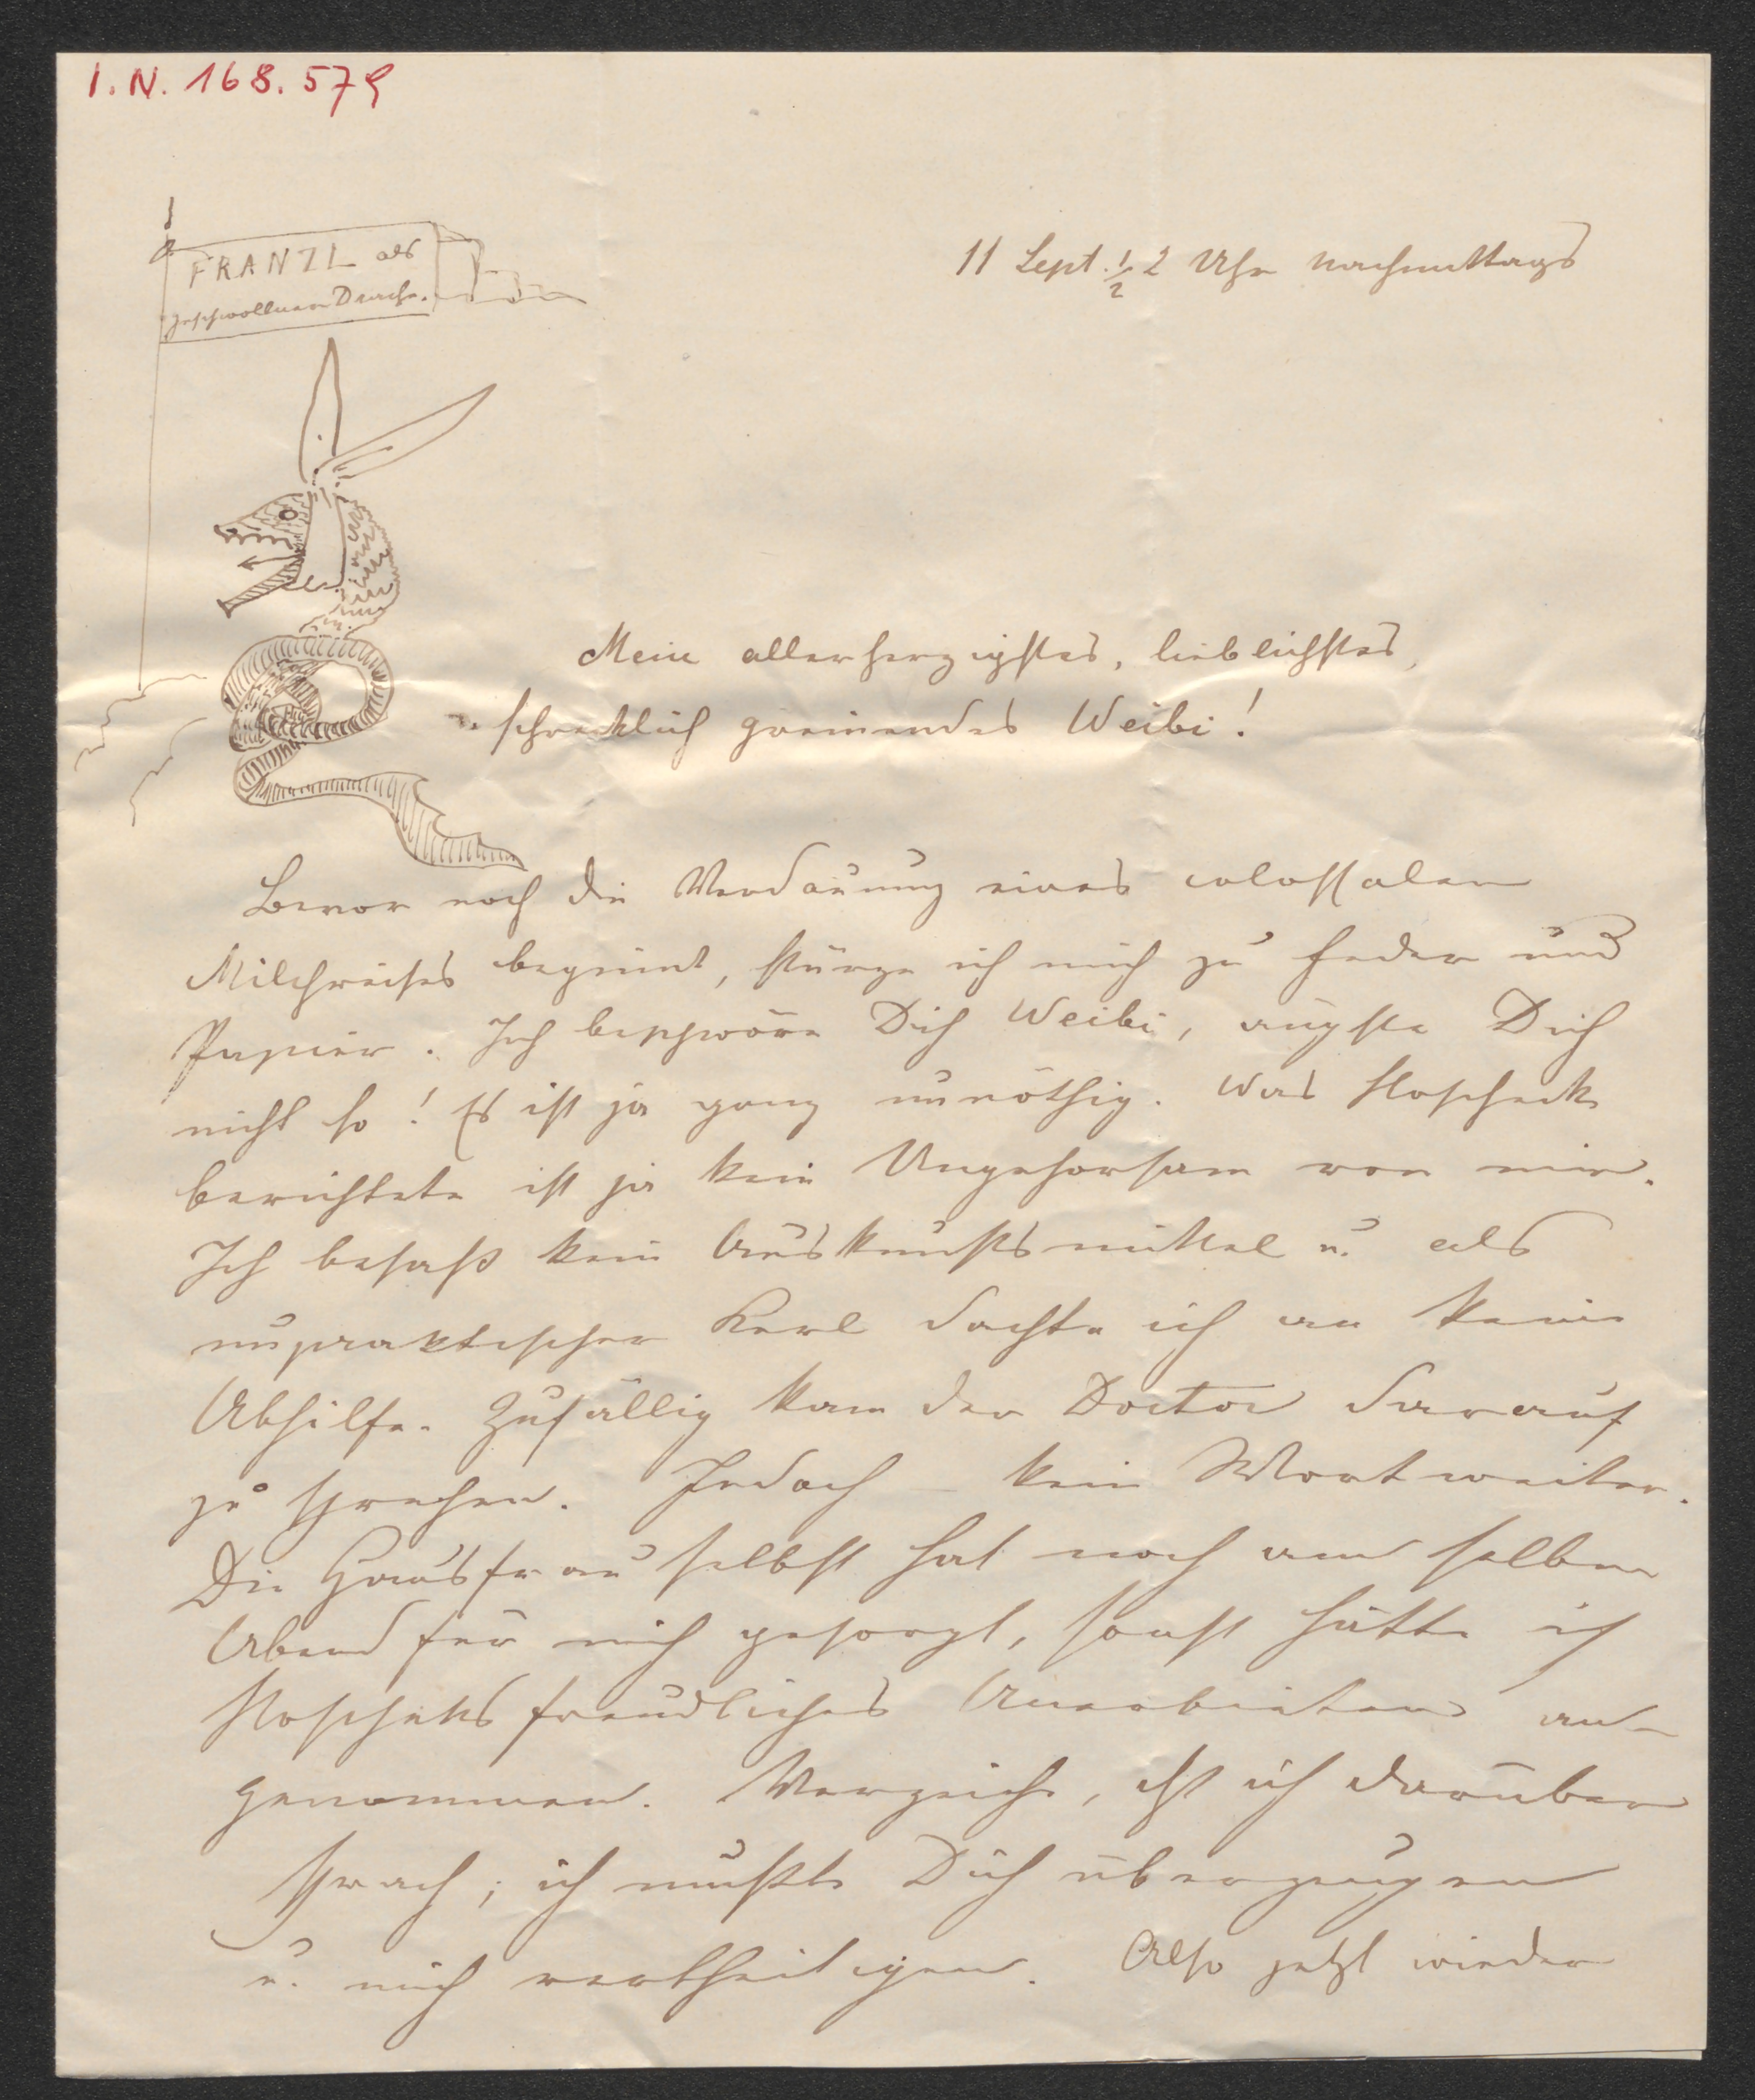 I. N. 168.579
FRANZL als
geschwollener Drache.
11 Sept. ½ 2 Uhr nachmittags
Mein allerherzigstes, lieblichstes,
schrecklich greinendes Weibi!
Bevor noch die Verdauung eines colossalen
Milchreises beginnt, stürze ich mich zu Feder und
Papier. Ich beschwöre Dich Weibi, ängste Dich
nicht so! Es ist ja ganz unnöthig. Was Stoscheck
berichtete ist ja kein Ungehorsam von mir.
Ich besaß kein Auskunftsmittel u. als
unpraktischer Kerl dachte ich an keine
Abhilfe. Zufällig kam der Doctor darauf
zu sprechen. Jedoch – kein Wort weiter.
Die Hausfrau selbst hat noch am selben
Abend für mich gesorgt, sonst hätte ich
Stoscheks freundliches Anerbieten an-
genommen. Verzeihe, daß ich darüber
sprach; ich mußte Dich überzeugen
u. mich vertheidigen. Also jetzt wieder